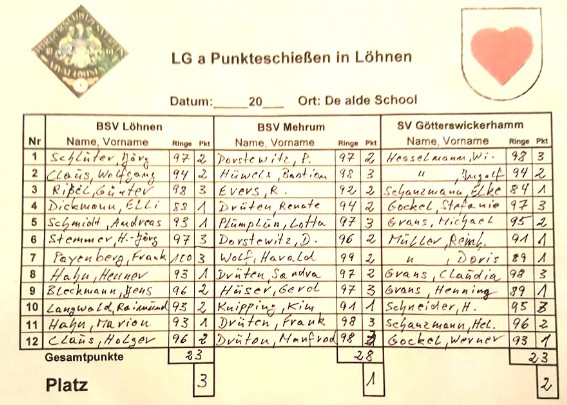 LG a Punkteschießen in Löhnen
Datum:_____20___ Ort: De alde School
BSV Löhnen BSV Mehrum SV Götterswickerhamm
Nr Name, Vorname Ringe Pkt Name, Vorname Ringe Pkt Name, Vorname Ringe Pkt
1 Schlüter, Jörg 97 2 Dorstewitz, P. 97 2 Hesselmann, Wi. 98 3
2 Claus, Wolfgang 94 2 Hüwels, Bastian 98 3 " , Ingolf 94 2
3 Ribel, Günter 98 3 Evers, R. 92 2 Schanzmann, Elke 84 1
4 Dickmann, Elli 88 1 Drüten, Renate 94 2 Gockel, Stefanie 97 3
5 Schmidt, Andreas 93 1 Plümpein, Lotta 97 3 Grans, Michael 95 2
6 Stemmer, H.-Jörg 97 3 Dorstewitz, D. 96 2 Müller, Reinh. 91 1
7 Payenberg, Frank 100 3 Wolf, Harald 99 2 " , Doris 89 1
8 Hahn, Henner 93 1 Drüten, Sandra 97 2 Grans, Claudia 98 3
9 Bleckmann, Jens 96 2 Häser, Gerd 97 3 Grans, Henning 89 1
10 Langwald, Raimund 93 2 Knipping, Kim, 91 1 Schneider, H. 95
11 Hahn, Marion 93 1 Drüten, Frank 98 3 Schanzmann, Hel. 96 2
12 Claus, Holger 96 2 Drüten, Manfred 98 Gockel, Werner 93 1
Gesamtpunkte 23 28 23
Platz 3 1 2